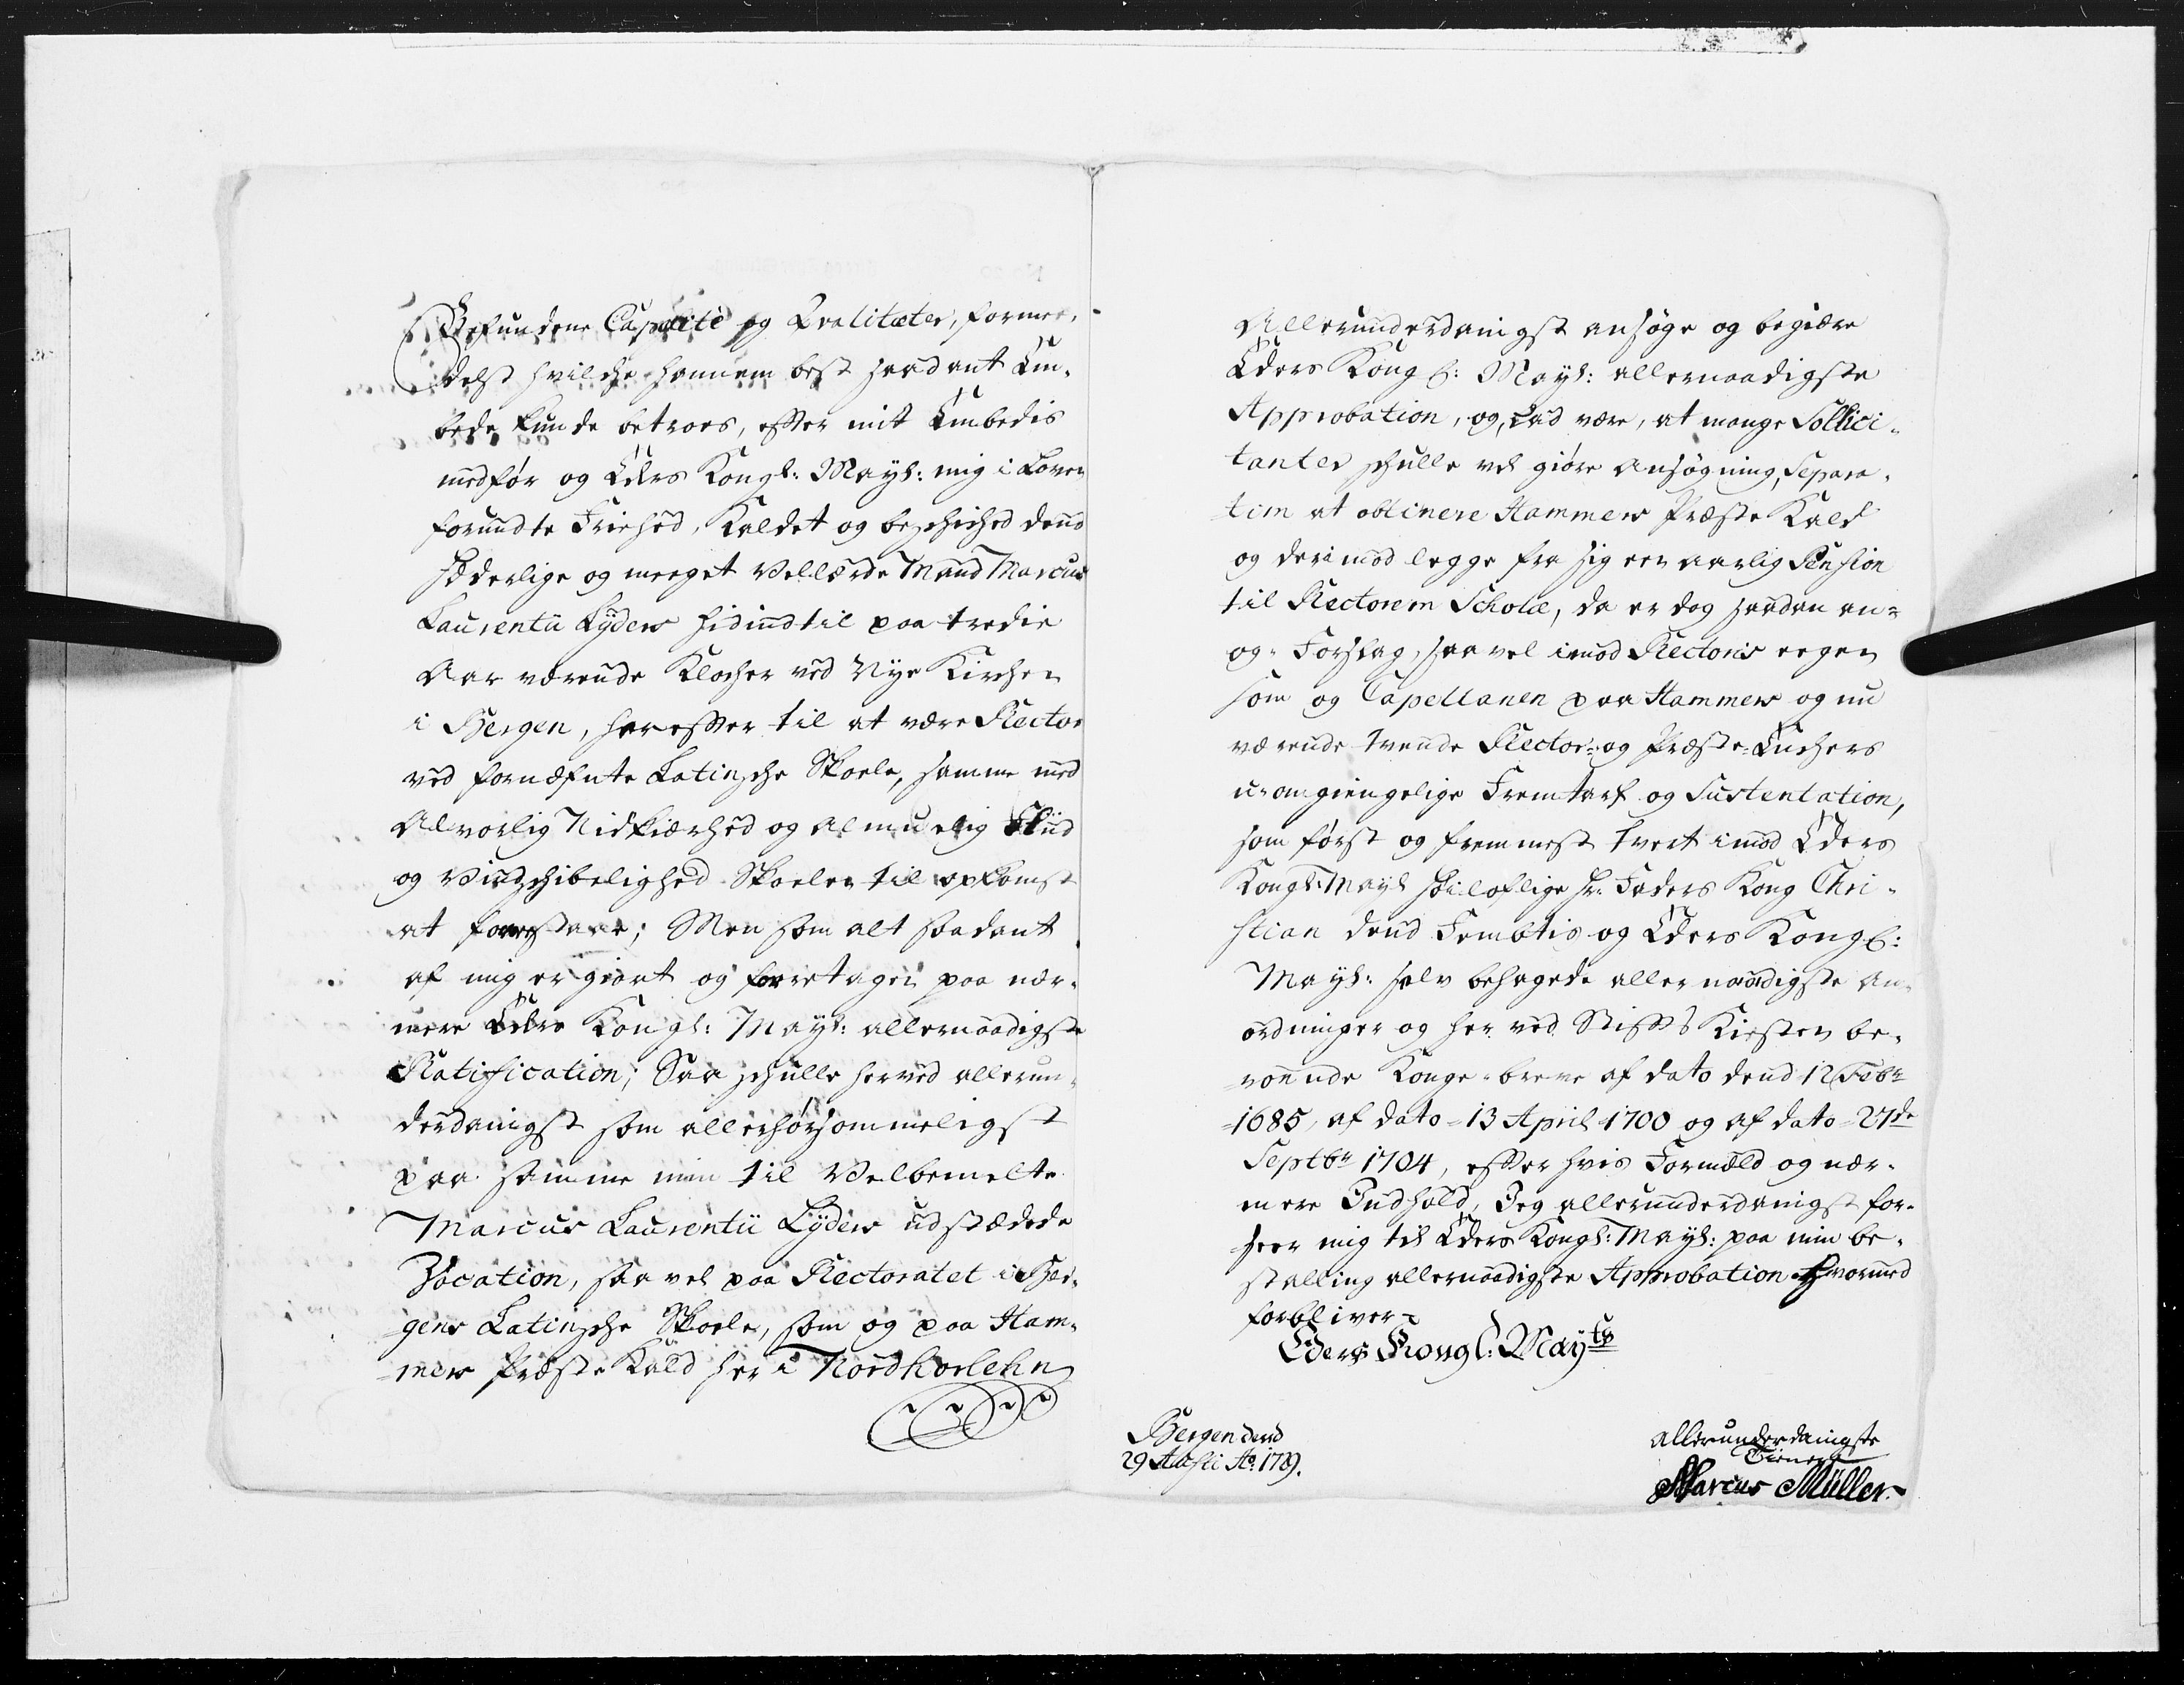 Befundene Capacité og Qvaliteter, formee-
delst hvilche hannem best saadant Em-
bede kunde betroes, efter mit Embedis
medfør og Eders Kongl: Mayt: mig i Loven
forundte Friehed, Kaldet og beschiched dend
Hæderlige og meeget Vellærde Mand Marcus
Laurentii Lÿders hidindtil paa tredie
Aar værende Klocher ved Nye Kirchen
i Bergen, herefter til at være Rector
ved fornæfnte Latinsche Skoele, samme med
Alvorlig Nidkiærhed og almuelig Fliid
og Vindschibelighed Skoelen til opkomst
at forestaae; Men som alt saadant
af mig er giort og foretagen paa nær-
mere Eders Kongl: Mayt: allernaadigste
Ratification; Saa schulle herved allerun-
derdanigst som allerhørsommeligst
paa samme min til Velbemelte
Marcus Laurentii Lÿders udstædede
Vocation, saa vel paa Rectoratet i Ber-
gens Latinsche Skoele, som og paa Ham-
mers Præste Kald her i Nordhorlehn
Allerunderdanigst ansøge og begiære
Eders Kongl: Mayt: allernaadigste
Approbation, og, Lad være, at mange Sollici-
tanter schulle vel giøre Ansøgning, Separa-
tim at obtinere Hammers Præste Kald
og derimod legge fra sig een aarlig Pension
til Rectorem Scholæ, da er dog saadan an-
og Forslag, saa vel imod Rectoris eegen
som og Capellanen paa Hammers og nu
værende tvende Rector- og Præste-Enchers
u-omgiengelige Fremtarf og Sustentation,
som først og fremmest tvert imod Eders
Kongl: Mayt høiloflige Hr. Faders Kong Chri-
stian dend Fembtis og Eders Kongl:
Mayt: selv behagede allernaadigste An-
ordninger og her ved Stifts Kisten be-
roende Konge-breve af dato dend 12 Febr
1685, af dato 13 April 1700 og af dato 27de
Septbr 1704, efter hvis Formæld og nær-
mere Indhold, Jeg allerunderdanigst for-
seer mig til Eders Kongl: Mayt: paa min be-
stalling allernaadigste Approbation. Hvormed
forbliver
Eders Kongl. Mayts
Bergen dend
29 Ao:
allerunderdanigste
Tienere
Marcus Müller